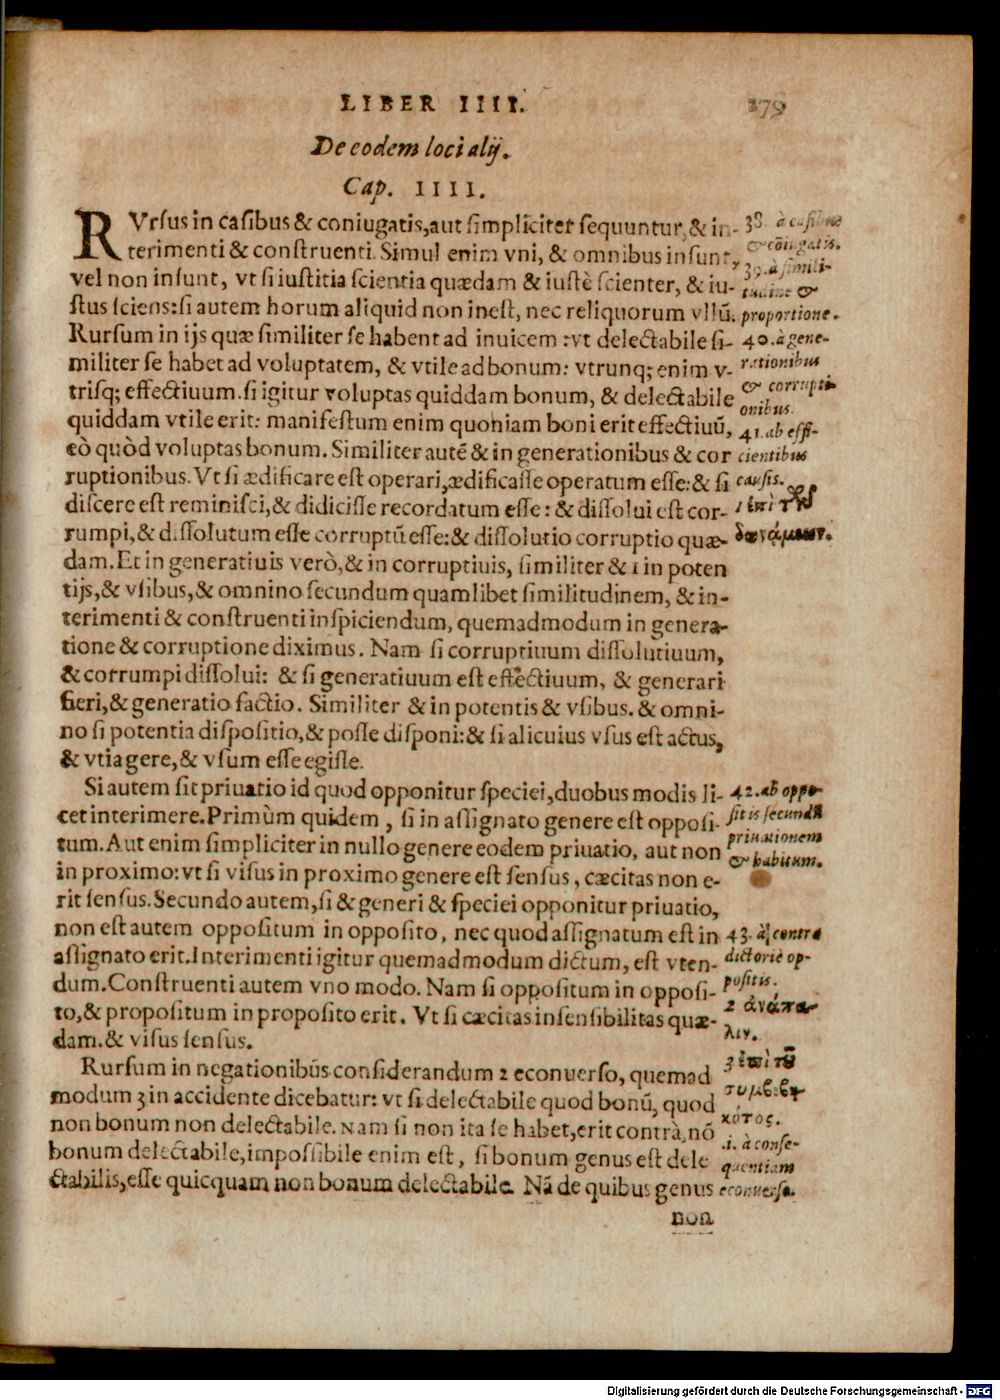 LIBER IIII. 279
De eodem loci alij.
Cap. IIII.
RVrsus in casibus & coniugatis, aut simpliciter sequuntur, & in-
terimenti & construenti. Simul enim vni, & omnibus insunt,
vel non insunt, vt si iustitia scientia quædam & iustè scienter, & iu-
stus sciens: si autem horum aliquid non inest, nec reliquorum vllū.
Rursum in ijs quæ similiter se habent ad inuicem: vt delectabile si-
militer se habet ad voluptatem, & vtile ad bonum: vtrunq; enim v-
trisq; effectiuum. si igitur voluptas quiddam bonum, & delectabile
quiddam vtile erit: manifestum enim quoniam boni erit effectiuū,
eò quòd voluptas bonum. Similiter autē & in generationibus & cor
ruptionibus. Vt si ædificare est operari, ædificasse operatum esse: & si
discere est reminisci, & didicisse recordatum esse: & dissolui est cor-
rumpi, & dissolutum esse corruptū esse: & dissolutio corruptio quæ-
dam. Et in generatiuis verò, & in corruptiuis, similiter & 1 in poten
tijs, & vsibus, & omnino secundum quamlibet similitudinem, & in-
terimenti & construenti inspiciendum, quemadmodum in genera-
tione & corruptione diximus. Nam si corruptiuum dissolutiuum,
& corrumpi dissolui: & si generatiuum est effectiuum, & generari
fieri, & generatio factio. Similiter & in potentis & vsibus. & omni-
no si potentia dispositio, & posse disponi: & si alicuius vsus est actus,
& vti agere, & vsum esse egisse.
Si autem sit priuatio id quod opponitur speciei, duobus modis li-
cet interimere. Primùm quidem, si in assignato genere est opposi-
tum. Aut enim simpliciter in nullo genere eodem priuatio, aut non
in proximo: vt si visus in proximo genere est sensus, cæcitas non e-
rit sensus. Secundo autem, si & generi & speciei opponitur priuatio,
non est autem oppositum in opposito, nec quod assignatum est in
assignato erit. Interimenti igitur quemadmodum dictum, est vten-
dum. Construenti autem vno modo. Nam si oppositum in opposi-
to, & propositum in proposito erit. Vt si cæcitas insensibilitas quæ-
dam. & visus sensus.
Rursum in negationibus considerandum 2 econuerso, quemad
modum 3 in accidente dicebatur: vt si delectabile quod bonū, quod
non bonum non delectabile. Nam si non ita se habet, erit contrà, nō
bonum delectabile, impossibile enim est, si bonum genus est dele
ctabilis, esse quicquam non bonum delectabile. Nā de quibus genus
non
38. à casibus
& coniugatis.
39. à simili-
tudine &
proportione.
40. à gene-
rationibus
& corrupti-
onibus.
41. ab effi-
cientibus
causis.
1 ἐπὶ τῶν
δυνάμεων.
42. ab oppo-
sitis secundū
priuationem
& habitum.
43. à contra
dictoriè op-
positis.
2 ἀνάπα-
λιν.
3 ἐπὶ τοῦ
συμβεβη-
κότος.
.i. à conse-
quentiam
econuerso.
Digitalisierung gefördert durch die Deutsche Forschungsgemeinschaft - DFG